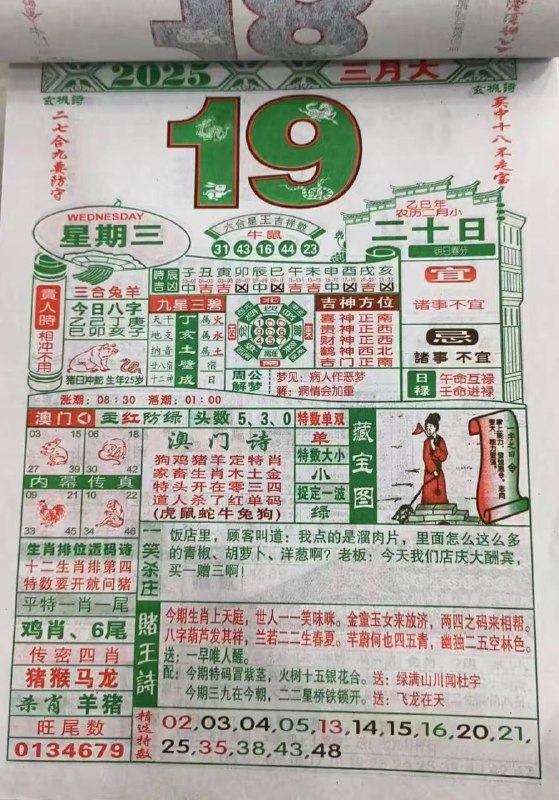 18
2025
三月大
玄机诗
玄机诗
二七合九要防守
19
WEDNESDAY
星期三
六合星王吉祥数
牛鼠
31 43 16 44 23
乙巳年
农历二月小
二十日
明日春分
貴人時
相冲不用
三合兔羊
今日八字
乙己丁庚
巳卯亥子
猪日冲蛇 生年25岁
時辰
子丑寅卯辰巳午未申酉戌亥
吉凶
九星三碧
丁亥土壁成
天干
地支
纳音
廿八宿
十二神
属火
属水
属土
北
吉神方位
喜神正南
贵神正西
财神正西
鹤神西北
吉门正南
周公解梦
梦见：病人作恶梦
解：病情会加重
宜
诸事不宜
忌
諸事 不宜
日禄
午命互禄
壬命进禄
涨潮：08：30 落潮：01：00
澳门
玉红防绿 头数 5、3、0
03 15
27 39
06 18
30 42
内幕传真
09 21
33 45
10
34 46
澳门诗
狗鸡猪羊定特肖
家畜生肖木土金
特头开在零三四
道人杀了红单码
(虎鼠蛇牛兔狗)
特数单双
单
特数大小
小
捉定一波
绿
藏宝图
生肖排位透码诗
十二生肖排第四
特数要开就问猪
平特一肖一尾
鸡肖、6尾
传密四肖
猪猴马龙
杀肖 羊猪
旺尾数
0134679
一笑杀庄
饭店里，顾客叫道：我点的是溜肉片，里面怎么这么多
的青椒、胡萝卜、洋葱啊？老板：今天我们店庆大酬宾，
买一赠三啊！
赌王詩
今期生肖上天庭，世人一一笑咪咪。金童玉女来放济，两四之码来相帮。
八字葫芦发其祥，兰若二二生春夏。芊蔚何也四五青，幽独二五空林色。
送：一早唯人醒。
配：今期特码冒紫茎，火树十五银花合。送：绿满山川闻杜字
今期三九在今朝，二二星桥铁锁开。送：飞龙在天
精选特数
02,03,04,05,13,14,15,16,20,21,
25,35,38,43,48